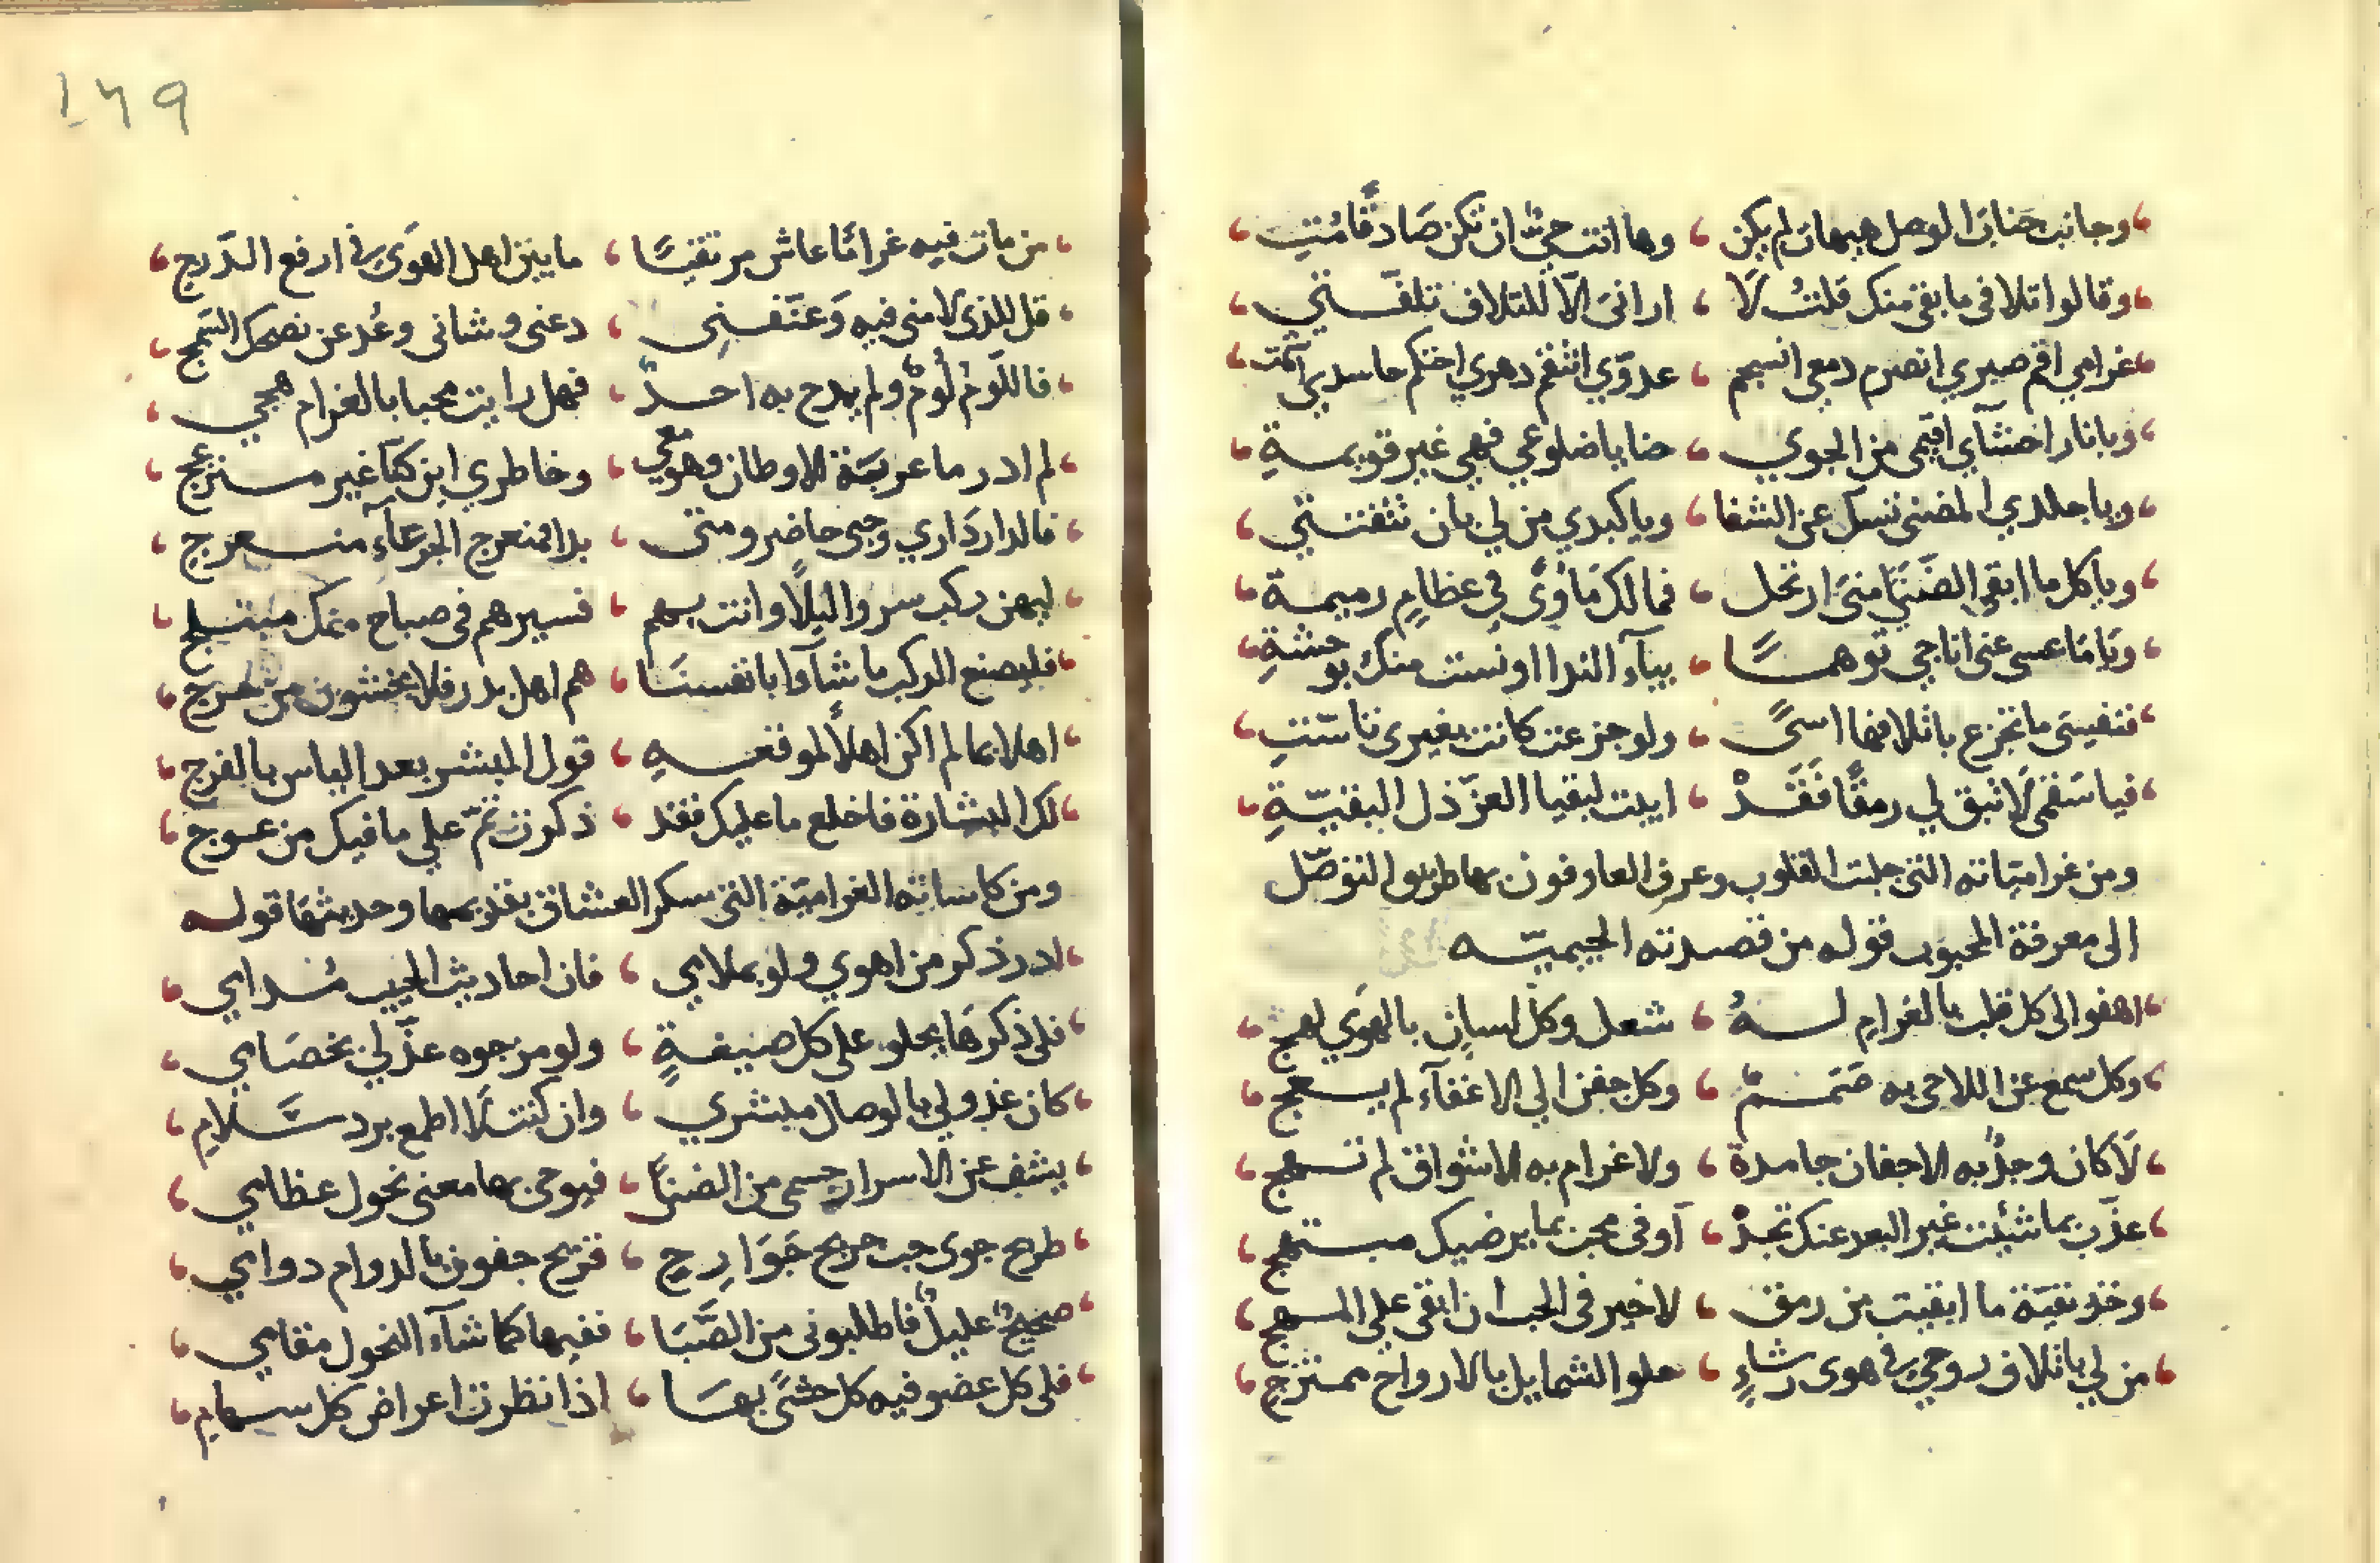 وجانب جناب الوصل هيهات لم يكن ، وها انت حيٌّ ان تكن صادقًا مُتِ
وقالوا تلافى ما بقى منك قلتُ لَا ، ارانيَ الّا للتلاف تلفّتي
غرامي اقم صبري انصرم دمعي انسجم ، عدوّي انتقم دهري احتكم حاسدي اشمت
ويا نار احشآي اقيمى من الجوي ، حنايا ضلوعي فهي غير قويمةِ
ويا جلدي المضنى تسل عن الشفا ، ويا كبدي من لي بان تتفتتي
ويا كل ما ابقي الضنا منيَ ارتحل ، فما لك مَاوًى في عظامٍ رميمة
ويَا مَا عسى عنى اناجي توهمًا ، بيآء الندا اونست منك بوحشةِ
فنفسيَ ما تجزع باتلافها اسًى ، ولو جزعت كانت بغيرى تاسّتِ
فيا سَقَمى لَا تبق لي رمقًا فَقَدْ ، ابيت لبقيا العزّ ذل البقيّةِ
ومن غراميّاته التى جلبت القلوب وعرف العارفون بها طريق التوصّل
الى معرفة المحبوب قوله من قصيدته الجيميّه
اهفوا الى كل قلب بالغرام لـهُ ، شغل وكل لسانٍ بالهوَي لهج
وكل سمع عن اللاحى به صَمَمٌ ، وكل جفن الي الاغفآء لم يعج
لَا كان وجدٌ به الاجفان جامدة ، ولا غرام به الاشواق لم تهج
عذّب بما شئت غير البعد عنك تجدْ ، اوفى محب بما يرضيك مبتهج
وخذ بقيّة ما ابقيت من رمق ، لا خير فى الحب ان ابقى علي المهج
من لي باتلاف روحي في هوى رشاءٍ ، حلو الشمايل بالارواح ممتزج
١٤٩
من مات فيه غرامًا عاش مرتقيًا ، ما بين اهل الهوَى في ارفع الدّرج
قل للذى لامنى فيه وَعَنّفـنِى ، دعنى وشانى وعُد عن نصحك السّمج
فاللّومُ لُومٌ ولم يمدح به احـدٌ ، فهل رايت محبا بالغرام هجي
لم ادر ما غربَة الاوطان وهو معي ، وخاطري اين كنّا غير منزعج
فالدار دَاري وحبى حاضر ومتى ، بدا فمنعرج الجرعآء منعرج
ليهن ركب سروا ليلًا وانت بهم ، فسيرهم فى صباح منك منبلج
فليصنع الركب ما شآوا بانفسنَا ، هم اهل بدر فلا يخشون من حرج
اهلا بما لم اكن اهلًا لموقعـهِ ، قول المبشر بعد الياس بالفرج
لك البشارة فاخلع ما عليك فقد ، ذكرت ثمّ علي ما فيك من عـوج
ومن كاساته الغراميّة التى سكر العشاق بقديمها وحديثها قولـه
ادر ذكر من اهوي ولو بملامي ، فان احاديث الحبيب مُـدامي
فلى ذكرهَا يحلو على كل صيغـةٍ ، ولو مزجوه عذّلي بخصَامي
كان عذولي بالوصال مبشري ، وان كنت لَا اطمع برد سَّـلامِ
يشف عن الاسرار جسمى من الضنا ، فيوحى بها معنى نحول عظامي
طريح جوى حب جريح جَوَارِحٍ ، قريح جفون بالدوام دوامي
صحيحٌ عليلٌ فاطلبونى من الصَّبَا ، ففيها كما شآء النحول مقامي
فلى كل عضو فيه كل حشًى بهَـا ، اذا نظرت اعراض كل سـهامِ